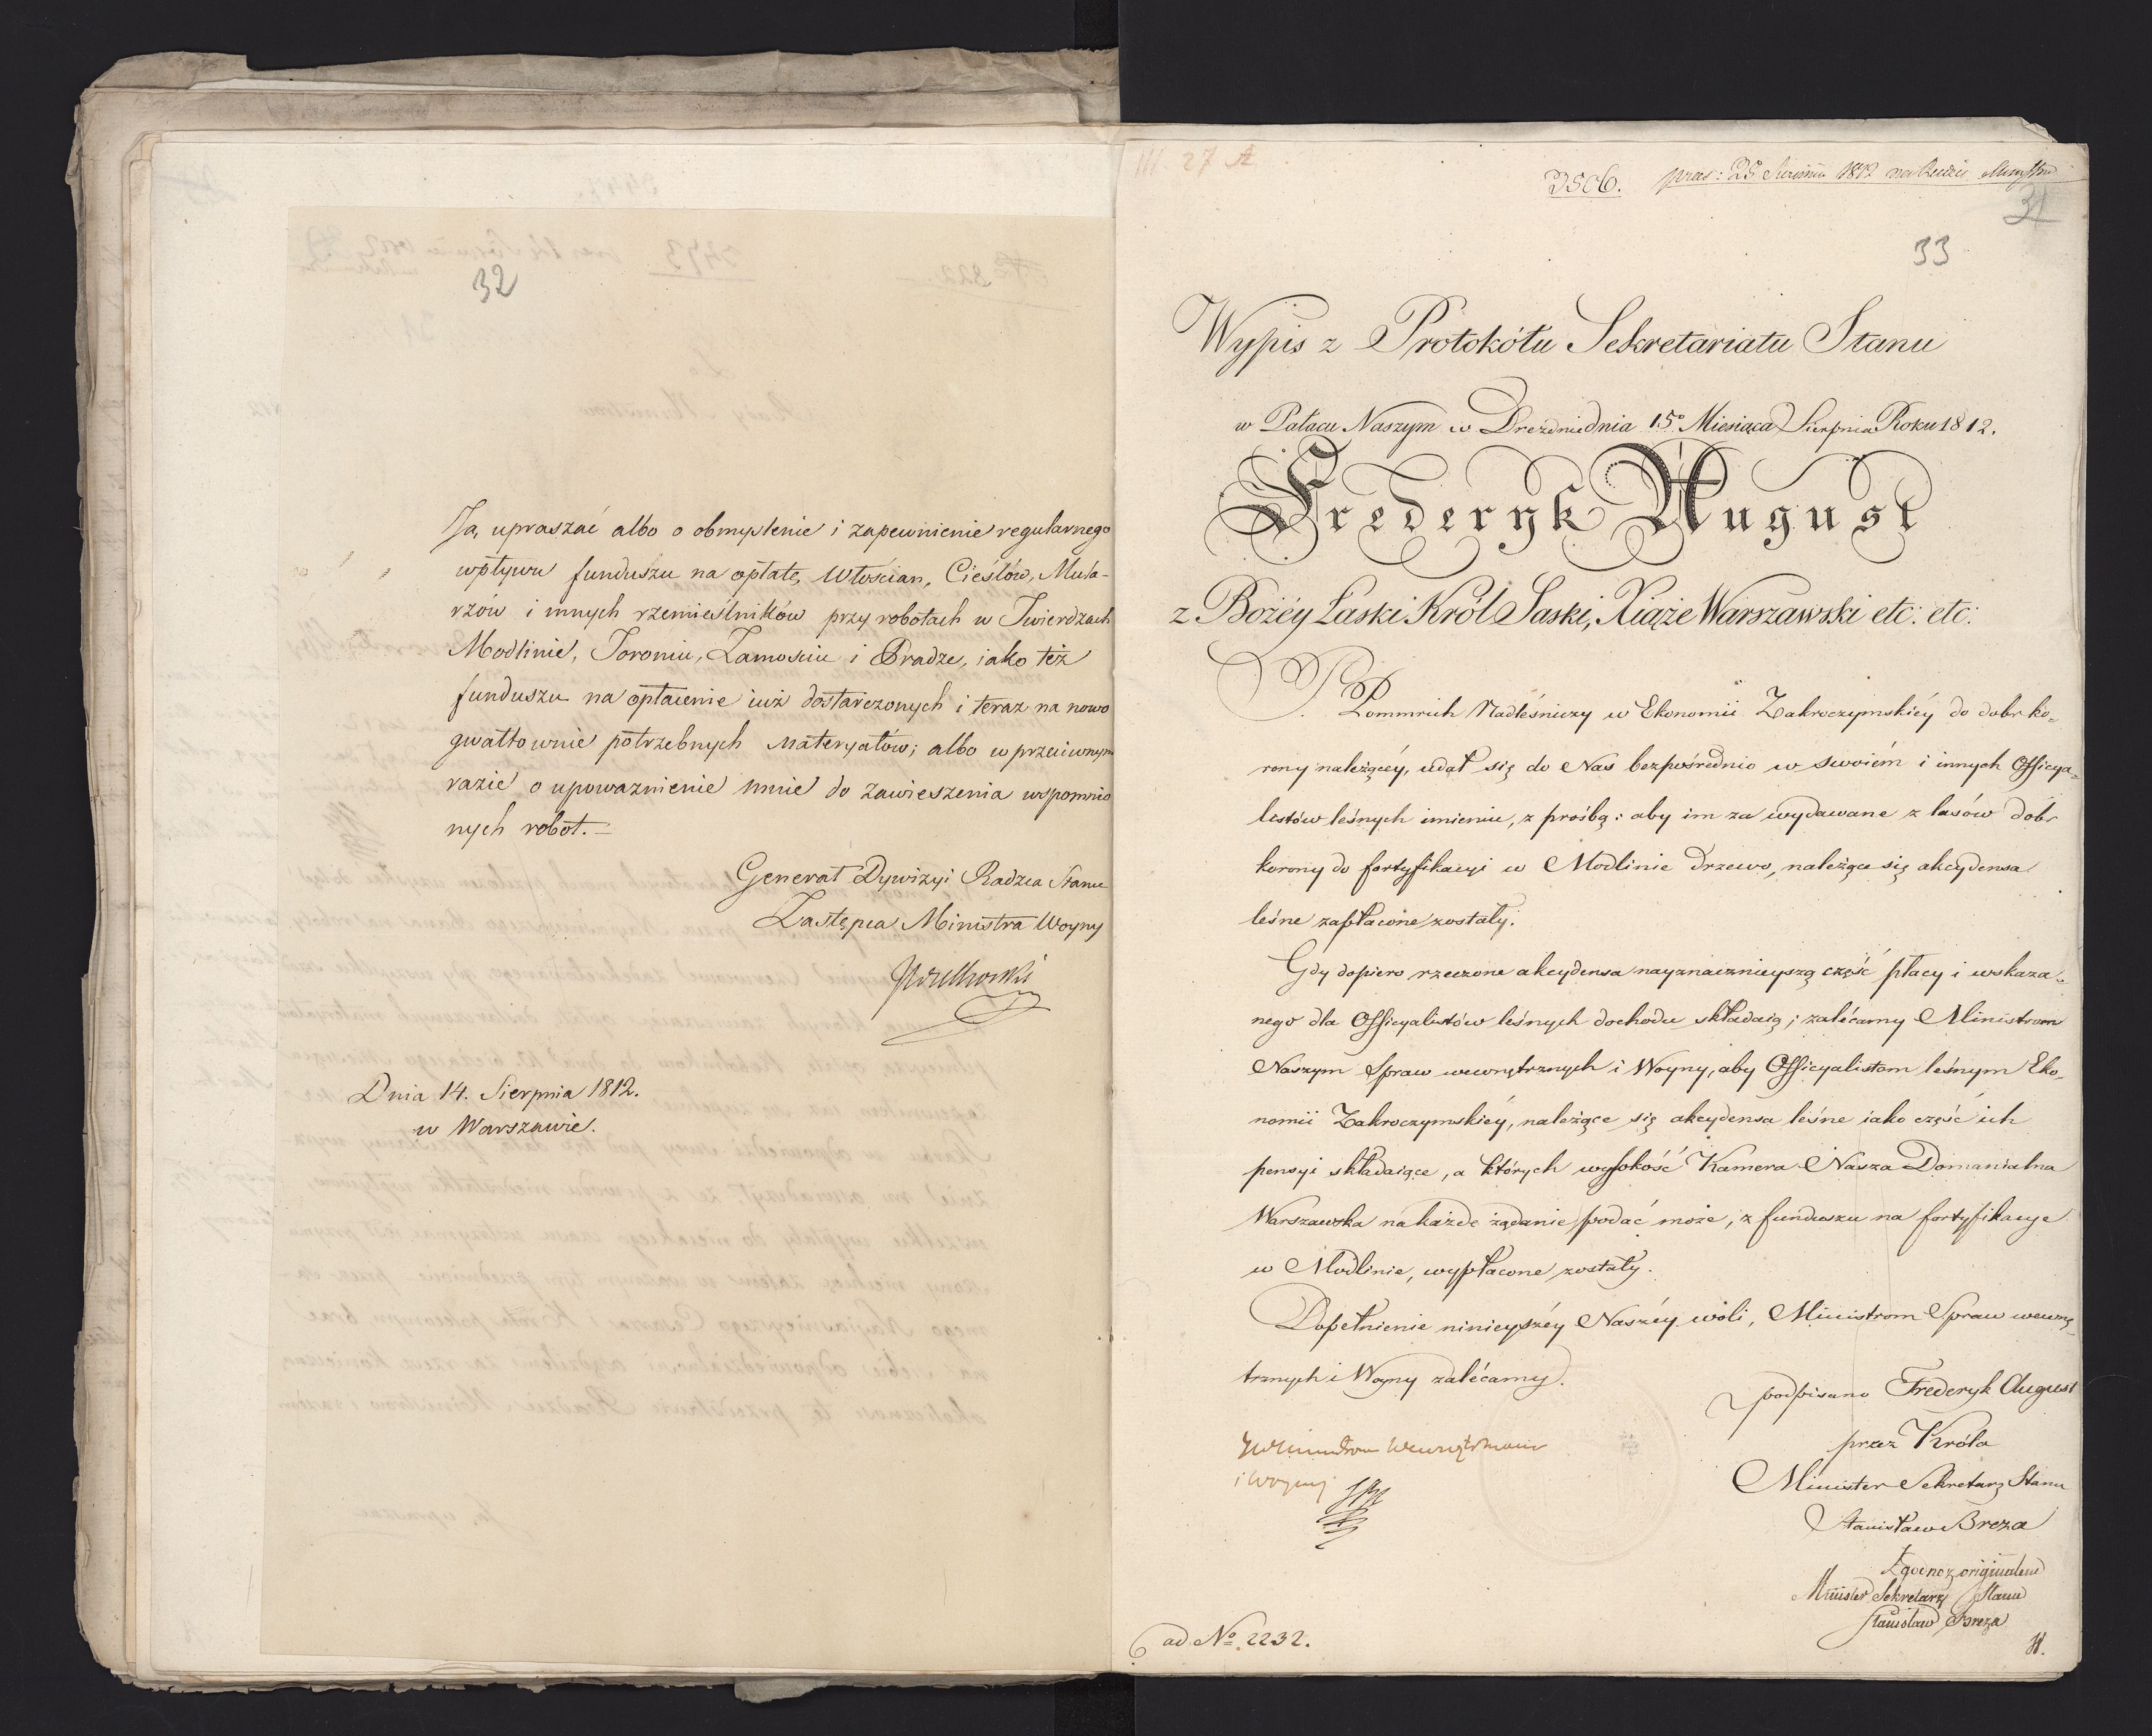 32
Ja, upraszać albo o obmyslenie i zapewnienie regularnego
wpływu funduszu na opłatę Włościan, Cieslów, Mula-
rzów i innych rzemieślników przy robotach w Twierdzach
Modlinie, Toroniu, Zamosciu i Pradze, iako też
funduszu na opłacenie iuż dostarczonych i teraz na nowo
gwałtownie potrzebnych Materyałów; albo w przeciwnym
razie o upowaznienie mnie do zawieszenia wspomnio
nych robot.=
Generał Dywizyi Radzca Stanu
Zastępca Ministra Woyny
Dnia 14. Sierpnia 1812.
w Warszawie.
III. 27 A
3506. pras: 25 Sierpnia 1812 na Radzie Ministrów
31
33
Wypis z Protokółu Sekretariatu Stanu
w Pałacu Naszym w Dreznie dnia 15º Miesiąca Sierpnia Roku 1812.
Frederyk August
z Bożéy Łaski Król Saski, Xiąże Warszawski etc: etc:
Pommrich Nadleśniczy w Ekonomii Zakroczymskiéy do dobr ko-
rony należącéy, udał się do Nas bezpośrednio w swoiém i innych Officya-
listów leśnych imieniu, z prośbą: aby im za wydawane z lasów dobr
korony do fortyfikacyi w Modlinie drzewo, należące się akcydensa
leśne zapłacone zostały.
Gdy dopiero rzeczone akcydensa nayznacznieyszą część płacy i wskaza-
nego dla Officyalistów leśnych dochodu składaią; zalécamy Ministrom
Naszym Spraw wewnętrznych i Woyny, aby Officyalistom leśnym Eko-
nomii Zakroczymskiéy, należące się akcydensa leśne iako część ich
pensyi składaiące, a których wysokość Kamera Nasza Domanialna
Warszawska na każde żądanie podać może, z funduszu na fortyfikacye
w Modlinie, wypłacone zostały.
Dopełnienie ninieyszéy Naszéy woli, Ministrom Spraw wewnę-
trznych i Woyny zalécamy.
podpisano Frederyk August
przez Króla
Minister Sekretarz Stanu
Stanisław Breza
Zgodno z originałem
Minister Sekretarz Stanu
Stanisław Breza
i Woyny
ad Nº 2232.